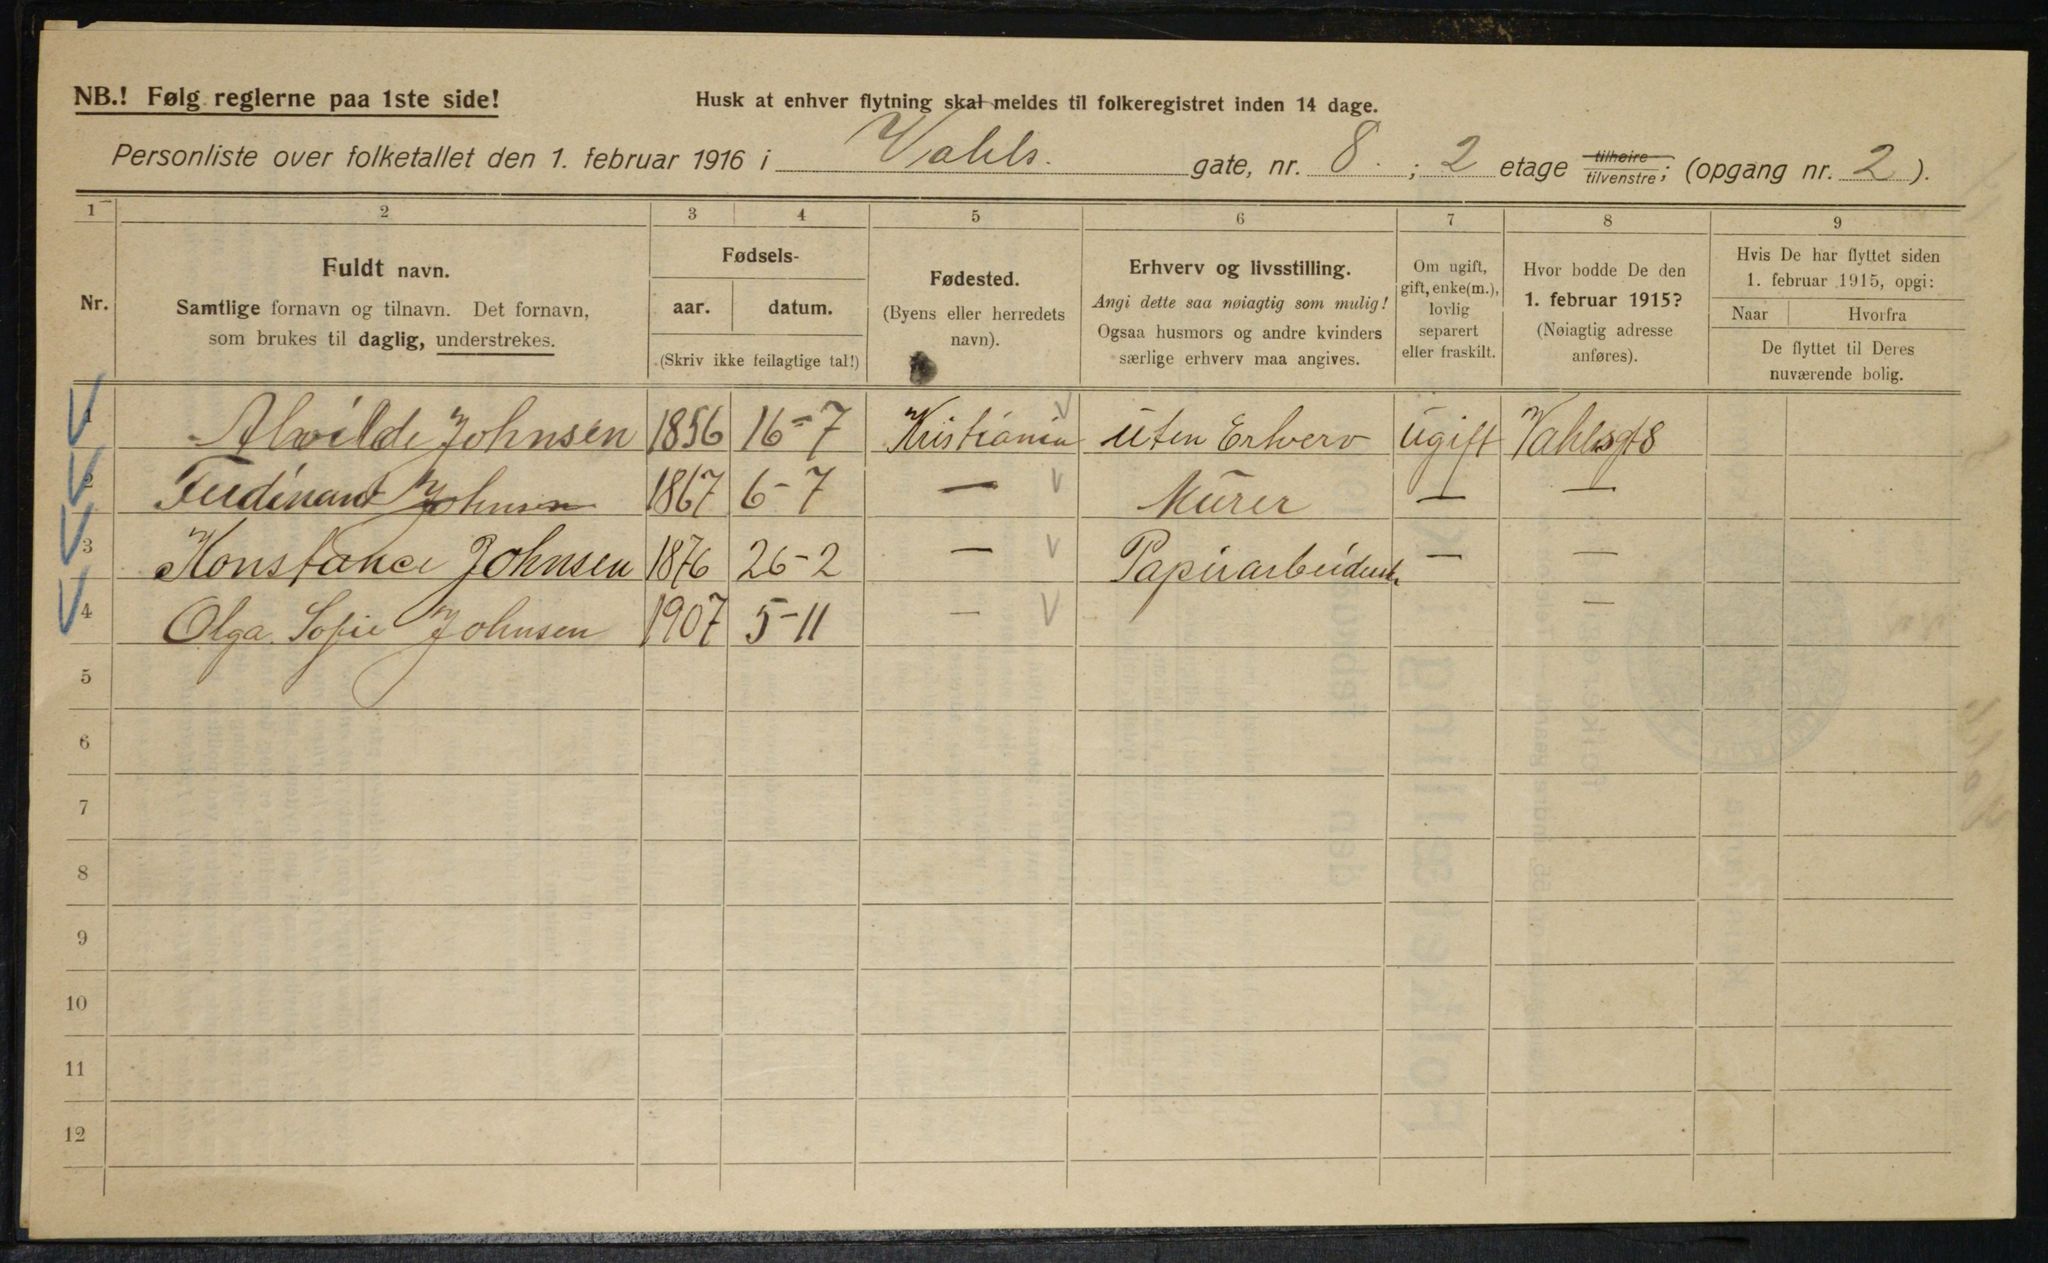 NB.! Følg reglerne paa 1ste side!
Husk at enhver flytning skal meldes til folkeregistret inden 14 dage.
Personliste over folketallet den 1. februar 1916 i Vahls. gate, nr. 8. ; 2 etage tilhøire tilvenstre; (opgang nr. 2).
1 2 3 4 5 6 7 8 9
Nr.
Fuldt navn.
Samtlige fornavn og tilnavn. Det fornavn,
som brukes til daglig, understrekes.
Fødsels-
aar. datum.
(Skriv ikke feilagtige tal!)
Fødested.
(Byens eller herredets
navn).
Erhverv og livsstilling.
Angi dette saa nøiagtig som mulig!
Ogsaa husmors og andre kvinders
særlige erhverv maa angives.
Om ugift,
gift, enke(m.),
lovlig
separert
eller fraskilt.
Hvor bodde De den
1. februar 1915?
(Nøiagtig adresse
anføres).
Hvis De har flyttet siden
1. februar 1915, opgi:
Naar Hvorfra
De flyttet til Deres
nuværende bolig.
1 Alvilde Johnsen 1856 16-7 Kristiania uten Erhverv ugift Vahlsgt 8
2 Ferdinant Johnsen 1867 6-7 — Murer — —
3 Konstance Johnsen 1876 26-2 — Papirarbeiderske — —
4 Olga Sofie Johnsen 1907 5-11 — —
5
6
7
8
9
10
11
12